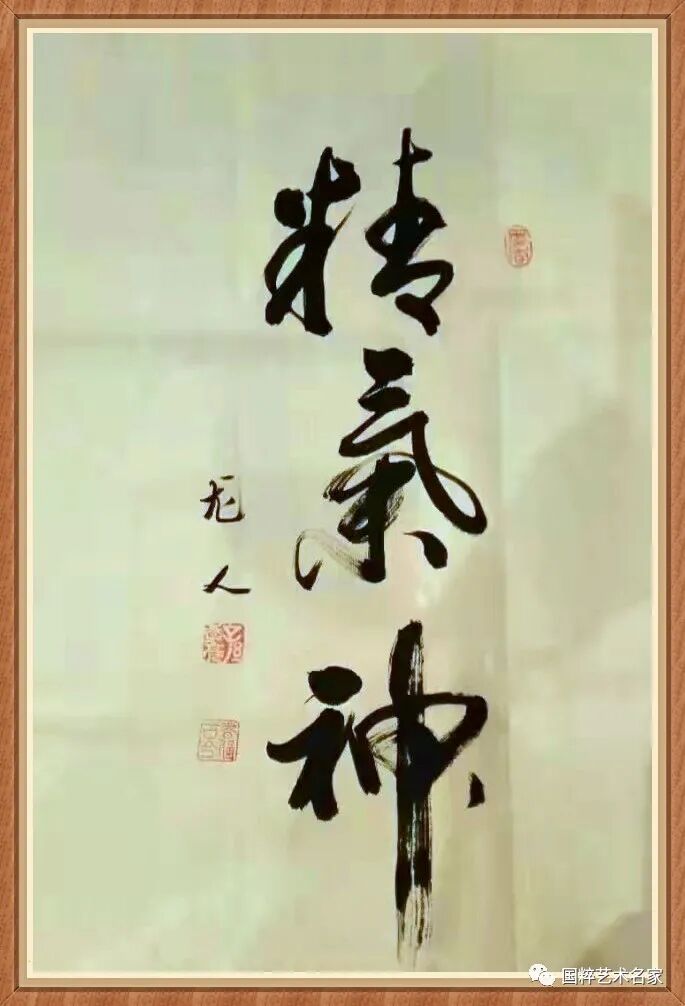 精氣神
龙人
国粹艺术名家